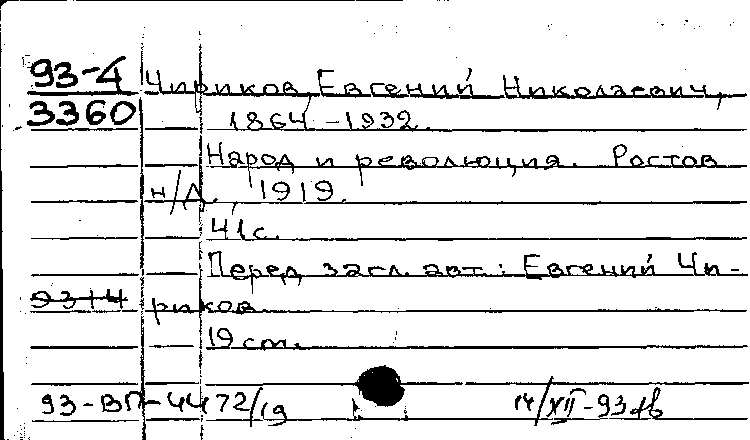 93-4 Чириков, Евгений Николаевич,
3360 1864-1932.
Народ и революция. Ростов
н/Д., 1919.
41с.
Перед загл. авт.: Евгений Чи-
9314 риков
19 cm.
93-ВП-4472/19 14/XII-93